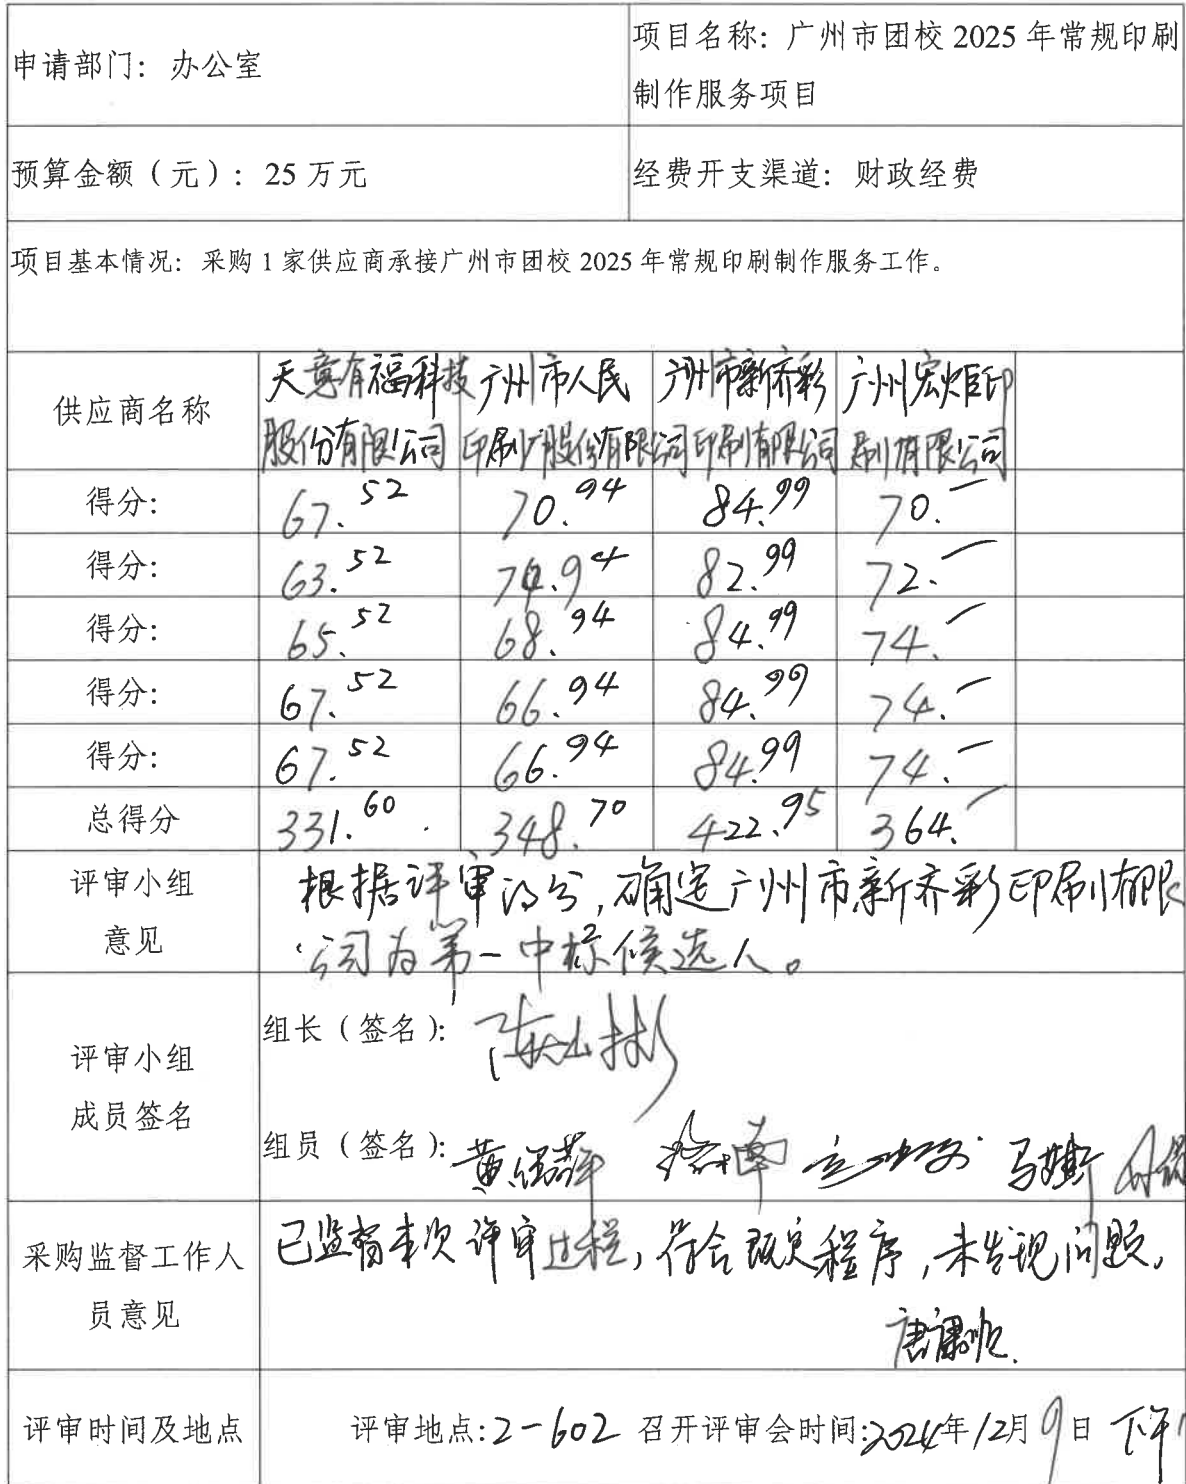 申请部门：办公室
项目名称：广州市团校 2025 年常规印刷
制作服务项目
预算金额（元）：25 万元
经费开支渠道：财政经费
项目基本情况：采购 1 家供应商承接广州市团校 2025 年常规印刷制作服务工作。
供应商名称
天意有福科技
股份有限公司
广州市人民
印刷厂股份有限公司
广州市新齐彩
印刷有限公司
广州宏炬印
刷有限公司
得分： 67.52 70.94 84.99 70.—
得分： 63.52 74.94 82.99 72.—
得分： 65.52 68.94 84.99 74.—
得分： 67.52 66.94 84.99 74.—
得分： 67.52 66.94 84.99 74.—
总得分 331.60 348.70 422.95 364.—
评审小组
意见
根据评审得分，确定广州市新齐彩印刷有限
公司为第一中标候选人。
评审小组
成员签名
组长（签名）：
组员（签名）：
采购监督工作人
员意见
已监督本次评审过程，符合既定程序，未发现问题。
评审时间及地点
评审地点：2-602 召开评审会时间：2024年12月9日 下午